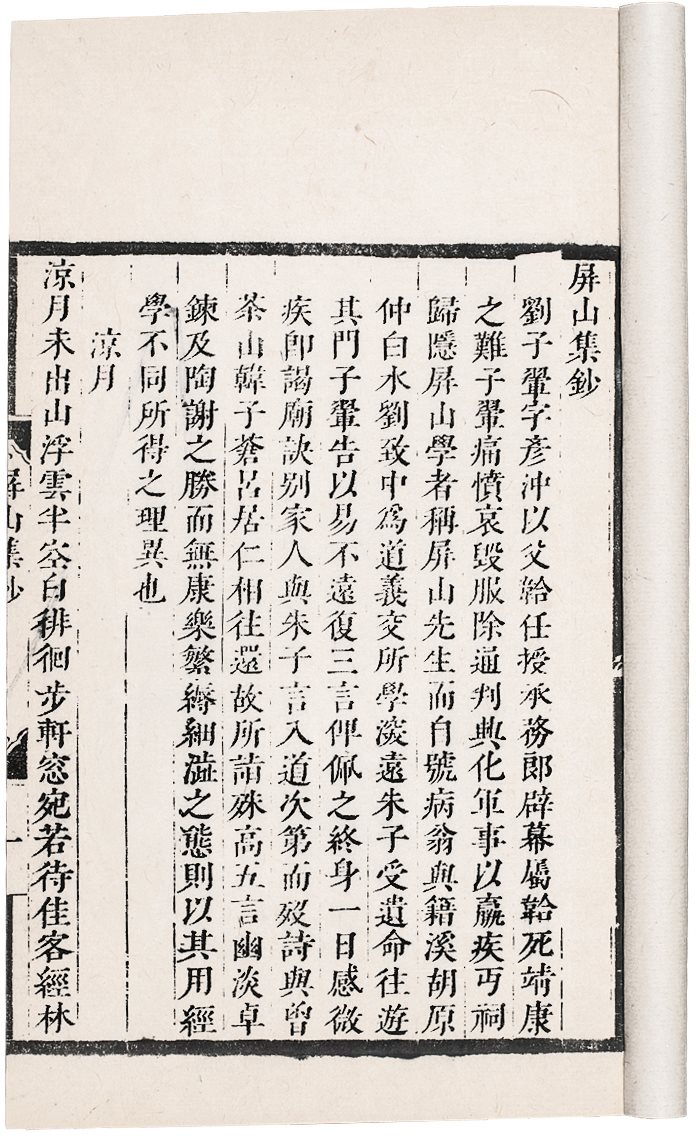 屏山集鈔
劉子翬字彥沖以父韐任授承務郎辟幕屬韐死靖康
之難子翬痛憤哀毀服除通判興化軍事以羸疾丐祠
歸隱屏山學者稱屏山先生而自號病翁與籍溪胡原
仲白水劉致中爲道義交所學淡遠朱子受遺命往遊
其門子翬告以易不遠復三言俾佩之終身一日感微
疾卽謁廟訣別家人與朱子言入道次第而歿詩與曾
茶山韓子蒼呂居仁相往還故所詣殊高五言幽淡卓
鍊及陶謝之勝而無康樂繁縟細澁之態則以其用經
學不同所得之理異也
涼月
涼月未出山浮雲半空白徘徊步軒窓宛若待佳客經林
屏山集鈔
一